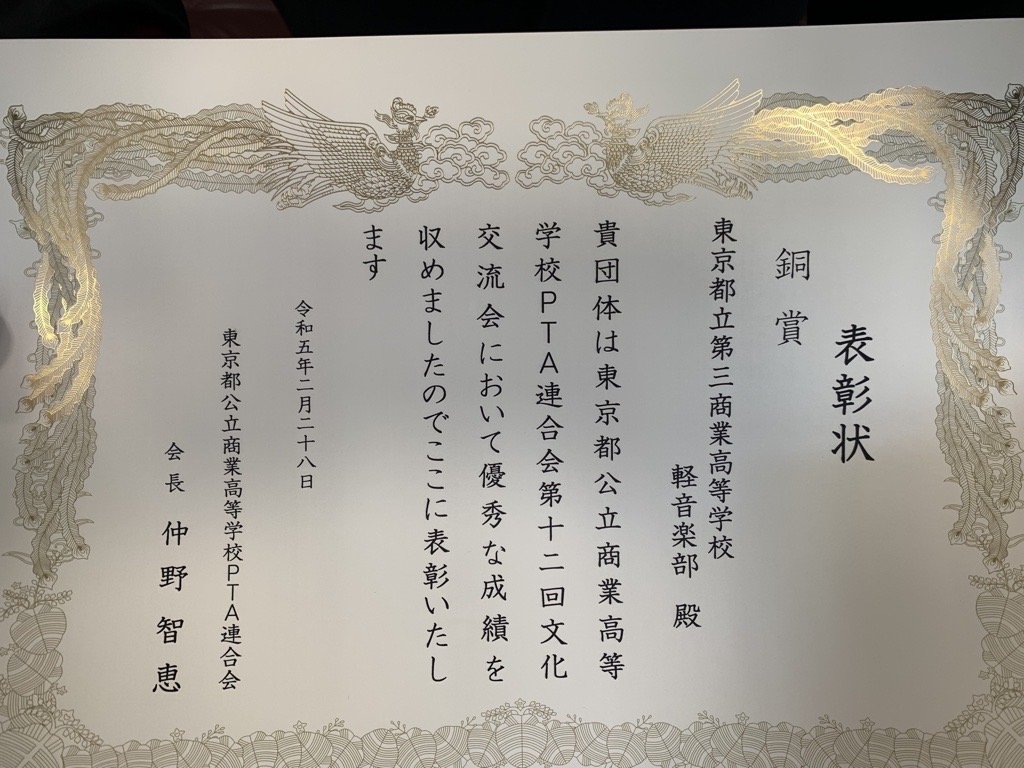 表彰状
銅賞
東京都立第三商業高等学校
軽音楽部 殿
貴団体は東京都公立商業高等
学校PTA連合会第十二回文化
交流会において優秀な成績を
収めましたのでここに表彰いたし
ます
令和五年二月二十八日
東京都公立商業高等学校PTA連合会
会長 仲野智恵